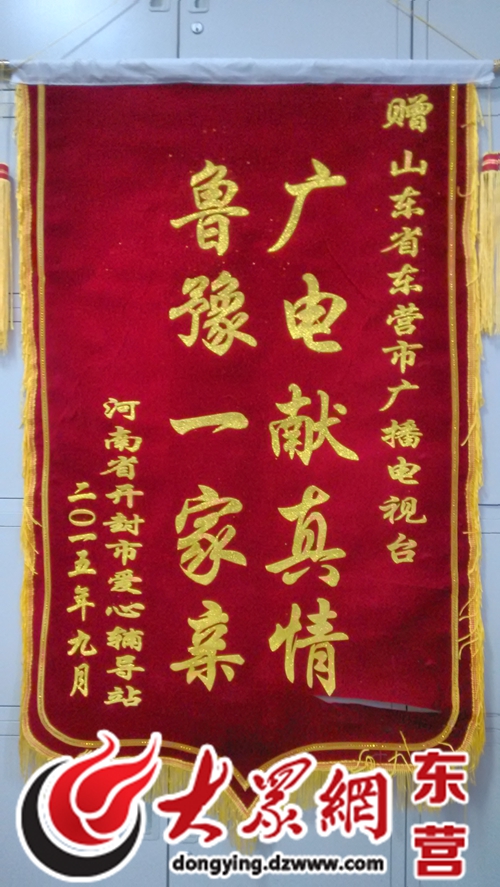 赠山东省东营市广播电视台
广电献真情
鲁豫一家亲
河南省开封市爱心辅导站
二〇一五年九月
大众網
东营
dongying.dzwww.com